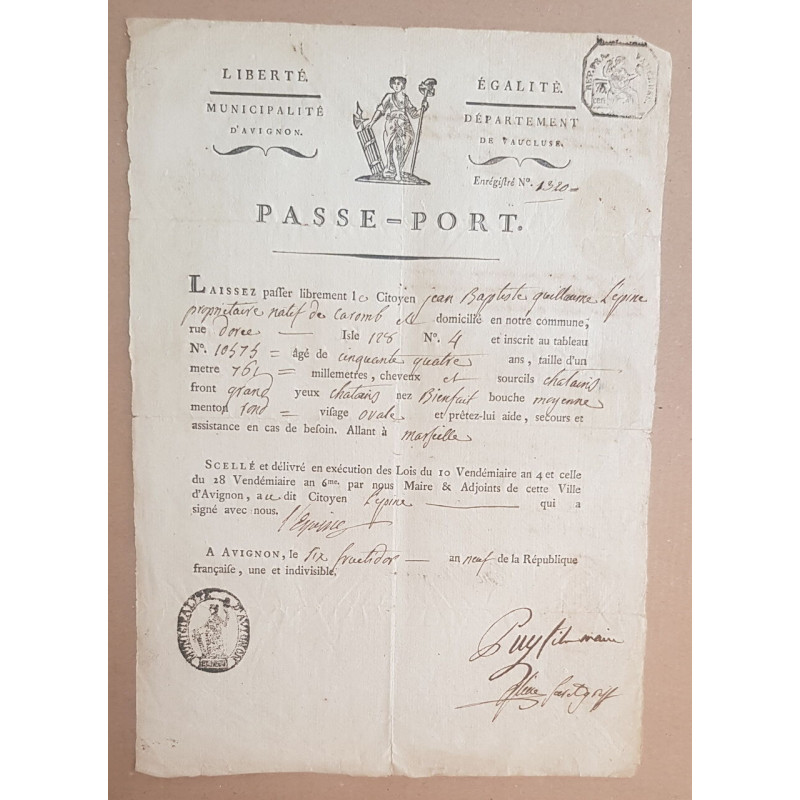 LIBERTÉ.
ÉGALITÉ.
MUNICIPALITÉ
D'AVIGNON.
DÉPARTEMENT
DE VAUCLUSE.
REP. FRA.
75
cen
Enrégistré No. 1320
PASSE-PORT.
LAISSEZ passer librement le Citoyen jean Baptiste guillaume L'epine
propriétaire natif de caromb et domicilié en notre commune,
rue dorée Isle 128 No. 4 et inscrit au tableau
No. 10575 = âgé de cinquante quatre ans, taille d'un
metre 761 = millemetres, cheveux et sourcils chatains
front grand yeux chatains nez Bienfait bouche moyenne
menton rond = visage ovale et prêtez-lui aide, secours et
assistance en cas de besoin. Allant à marseille
SCELLÉ et délivré en exécution des Lois du 10 Vendémiaire an 4 et celle
du 28 Vendémiaire an 6me. par nous Maire & Adjoints de cette Ville
d'Avignon, a ce dit Citoyen L'epine qui a
signé avec nous.
l'Epine
A AVIGNON, le six fructidor an neuf de la République
française, une et indivisible.
MUNICIPALITÉ D'AVIGNON
Puy maire